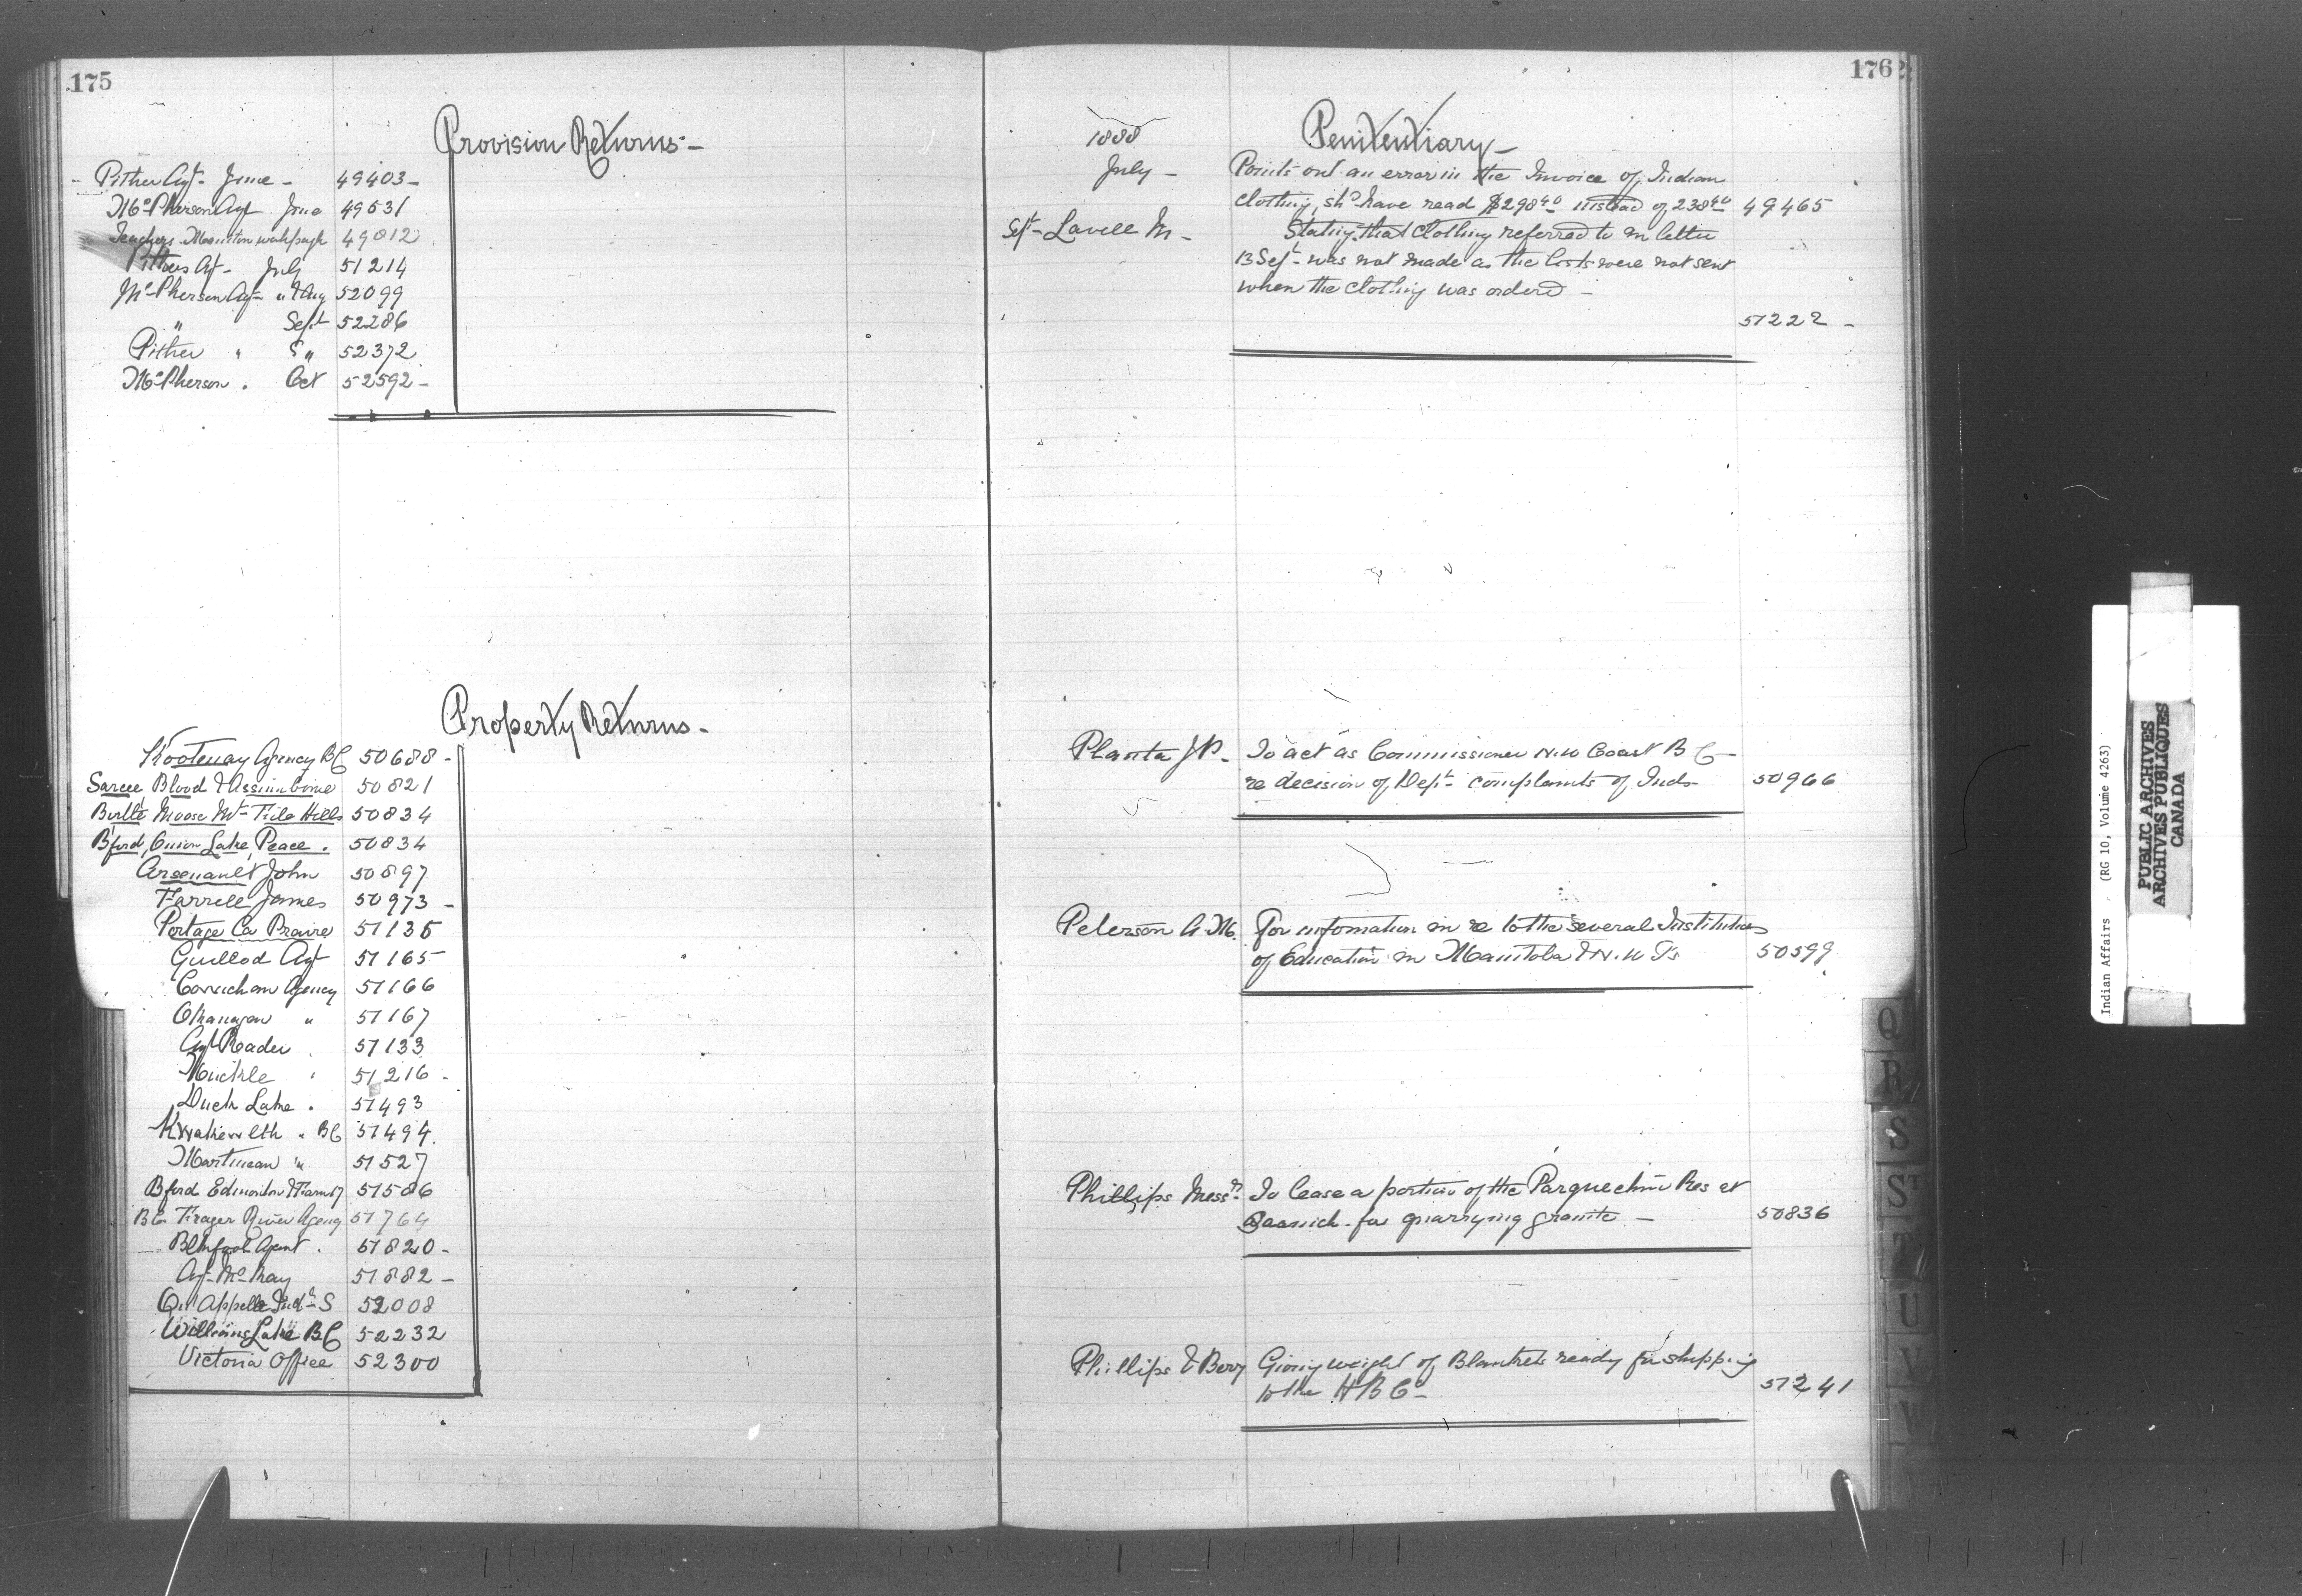 175
Provision Returns -
Pither Agt - June - 49403 -
McPherson Agt June 49531
Teachers 49812
Pithers Agt - July 51214
McPherson Agt - " & Aug 52099
" Sept 52286
Pither " S " 52372
McPherson . Oct 52592 -
Property Returns -
Kootenay Agency BC 50688 -
Sarcee Blood & Assiniboine 50821
Birtle Moose Mt - File Hills 50834
Bford, Onion Lake, Peace . 50834
Arsenault John 50897
Farrell James 50973 -
Portage La Prairie 51135
Guillod Agt 51165
Cowichan Agency 51166
Okanagan " 51167
Agt Reader . 51133
Muckle " 51216 -
Duck Lake . 51493
Kwawkewlth " BC 51494
Martineau " 51527
Bford Edmonton & 51586
BC Frazer River Agency 51764
Blkfoot Agent . 51820 -
Agt - McKay 51882 -
Qu'Appelle Indl S 52008
Williams Lake BC 52232
Victoria Office 52300
176
1888
Penitentiary -
July - Points out an error in the Invoice of Indian
clothing, shd have read $298.40 instead of 238.40 49465
Sept - Lavell M - Stating that clothing referred to in letter
13 Sept - was not made as the lists were not sent
when the clothing was ordered -
51222 -
Planta J P. - To act as Commissioner N.W Coast B C -
re decision of Dept - complaints of Inds - 50966
Peterson A. M. For information in re to the several Institutions
of Education in Manitoba & N. W Ts 50599
Phillips Messrs - To lease a portion of the Parquechin Res at
Saanich - for quarrying granite - 50836
Phillips & Berry Giving weight of Blankets ready for shipping
to the H B Co - 51241
Q
R
S
ST
T
U
V
W
Indian Affairs . (RG 10, Volume 4263)
PUBLIC ARCHIVES
ARCHIVES PUBLIQUES
CANADA